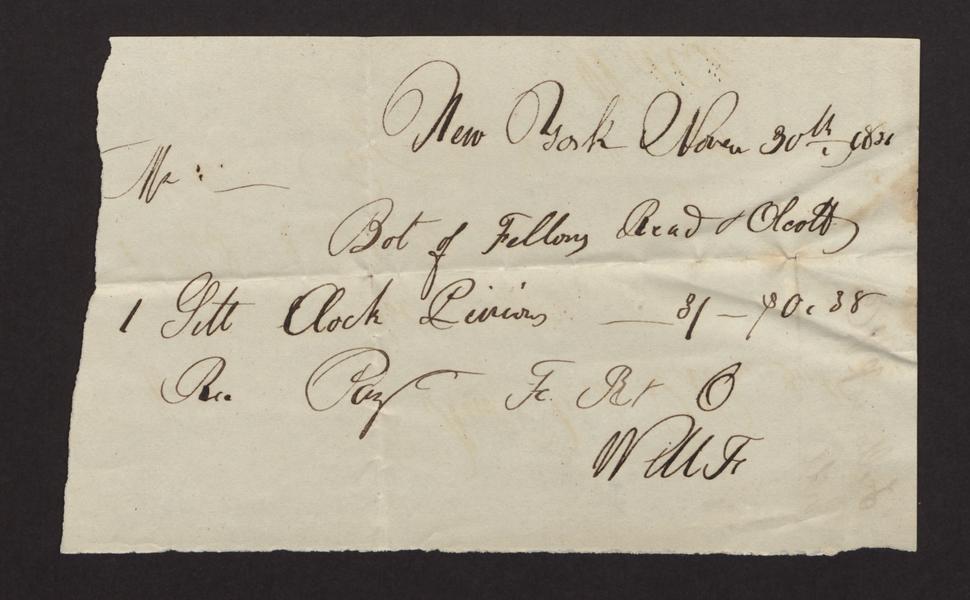 New York Novem 30th 1831
Mr :
Bot of Fellows Read & Olcott
1 Sett Clock Pinions — 3/ — $0.38
Rec Pay F. R & O
Will F